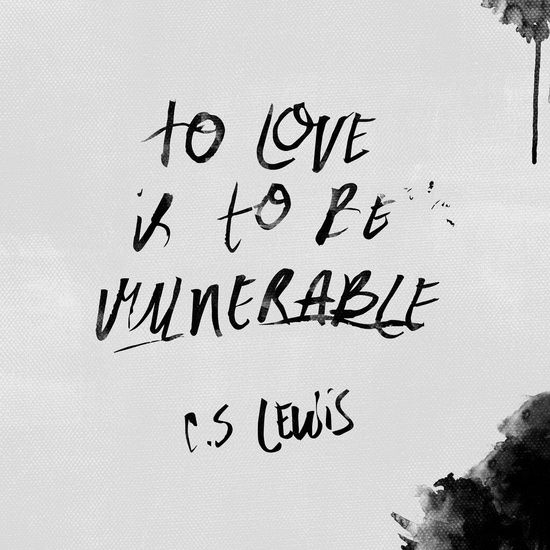 TO LOVE
is TO BE
VULNERABLE
C.S LEWiS